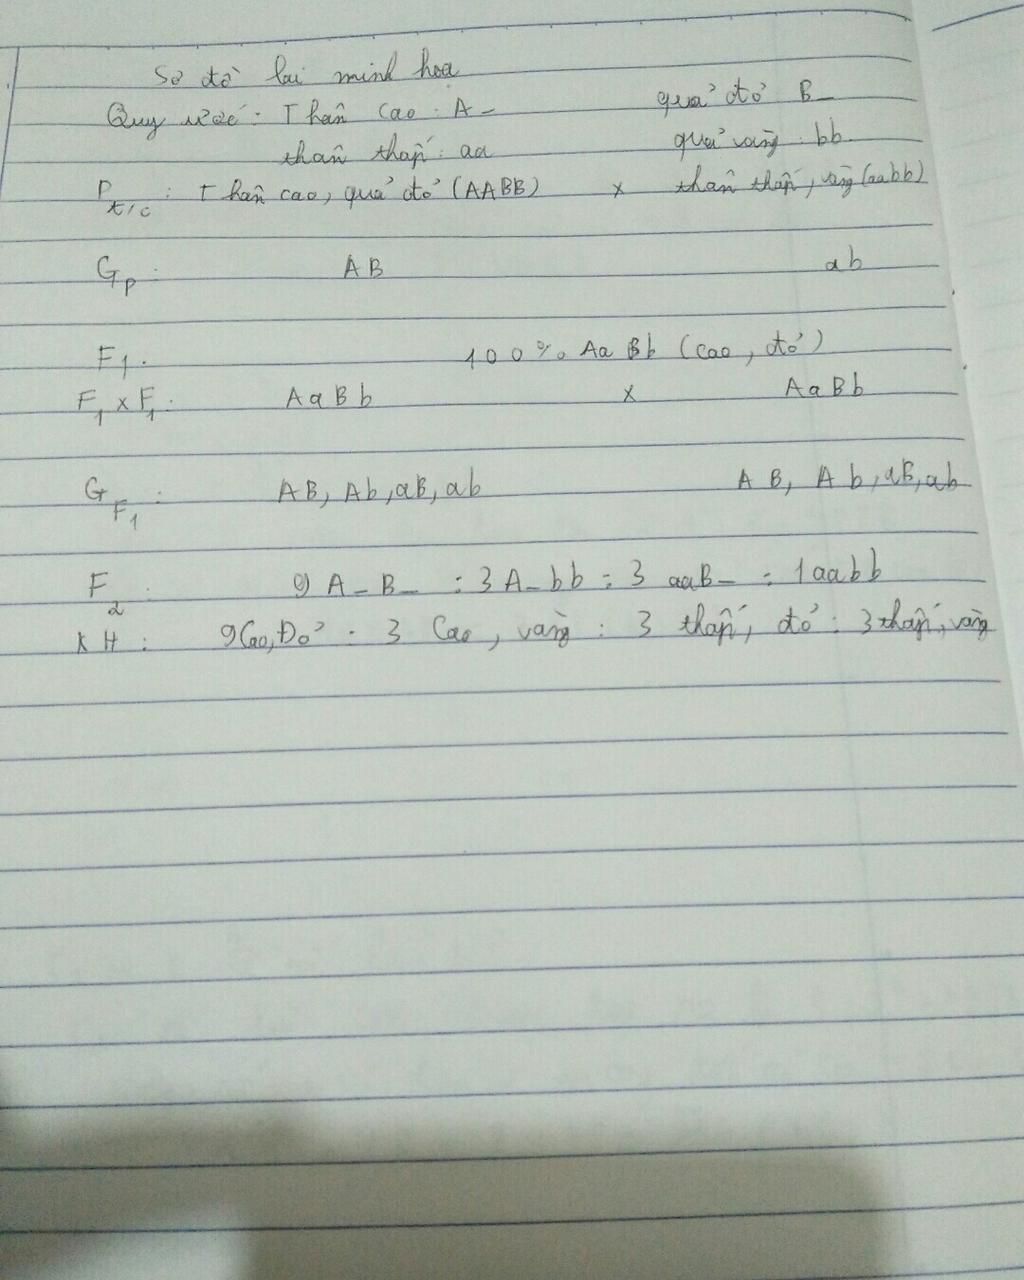 Sơ đồ lai minh họa
Quy ước: Thân cao: A- quả đỏ B-
thân thấp: aa quả vàng: bb
Pt/c: Thân cao, quả đỏ (AABB) x thân thấp, vàng (aabb)
Gp: AB ab
F1: 100% AaBb (cao, đỏ)
F1 x F1: AaBb x AaBb
GF1: AB, Ab, aB, ab AB, Ab, aB, ab
F2: 9 A-B- : 3 A-bb : 3 aaB- : 1aabb
KH: 9Cao, Đỏ : 3 Cao, vàng : 3 thấp, đỏ : 3 thấp, vàng